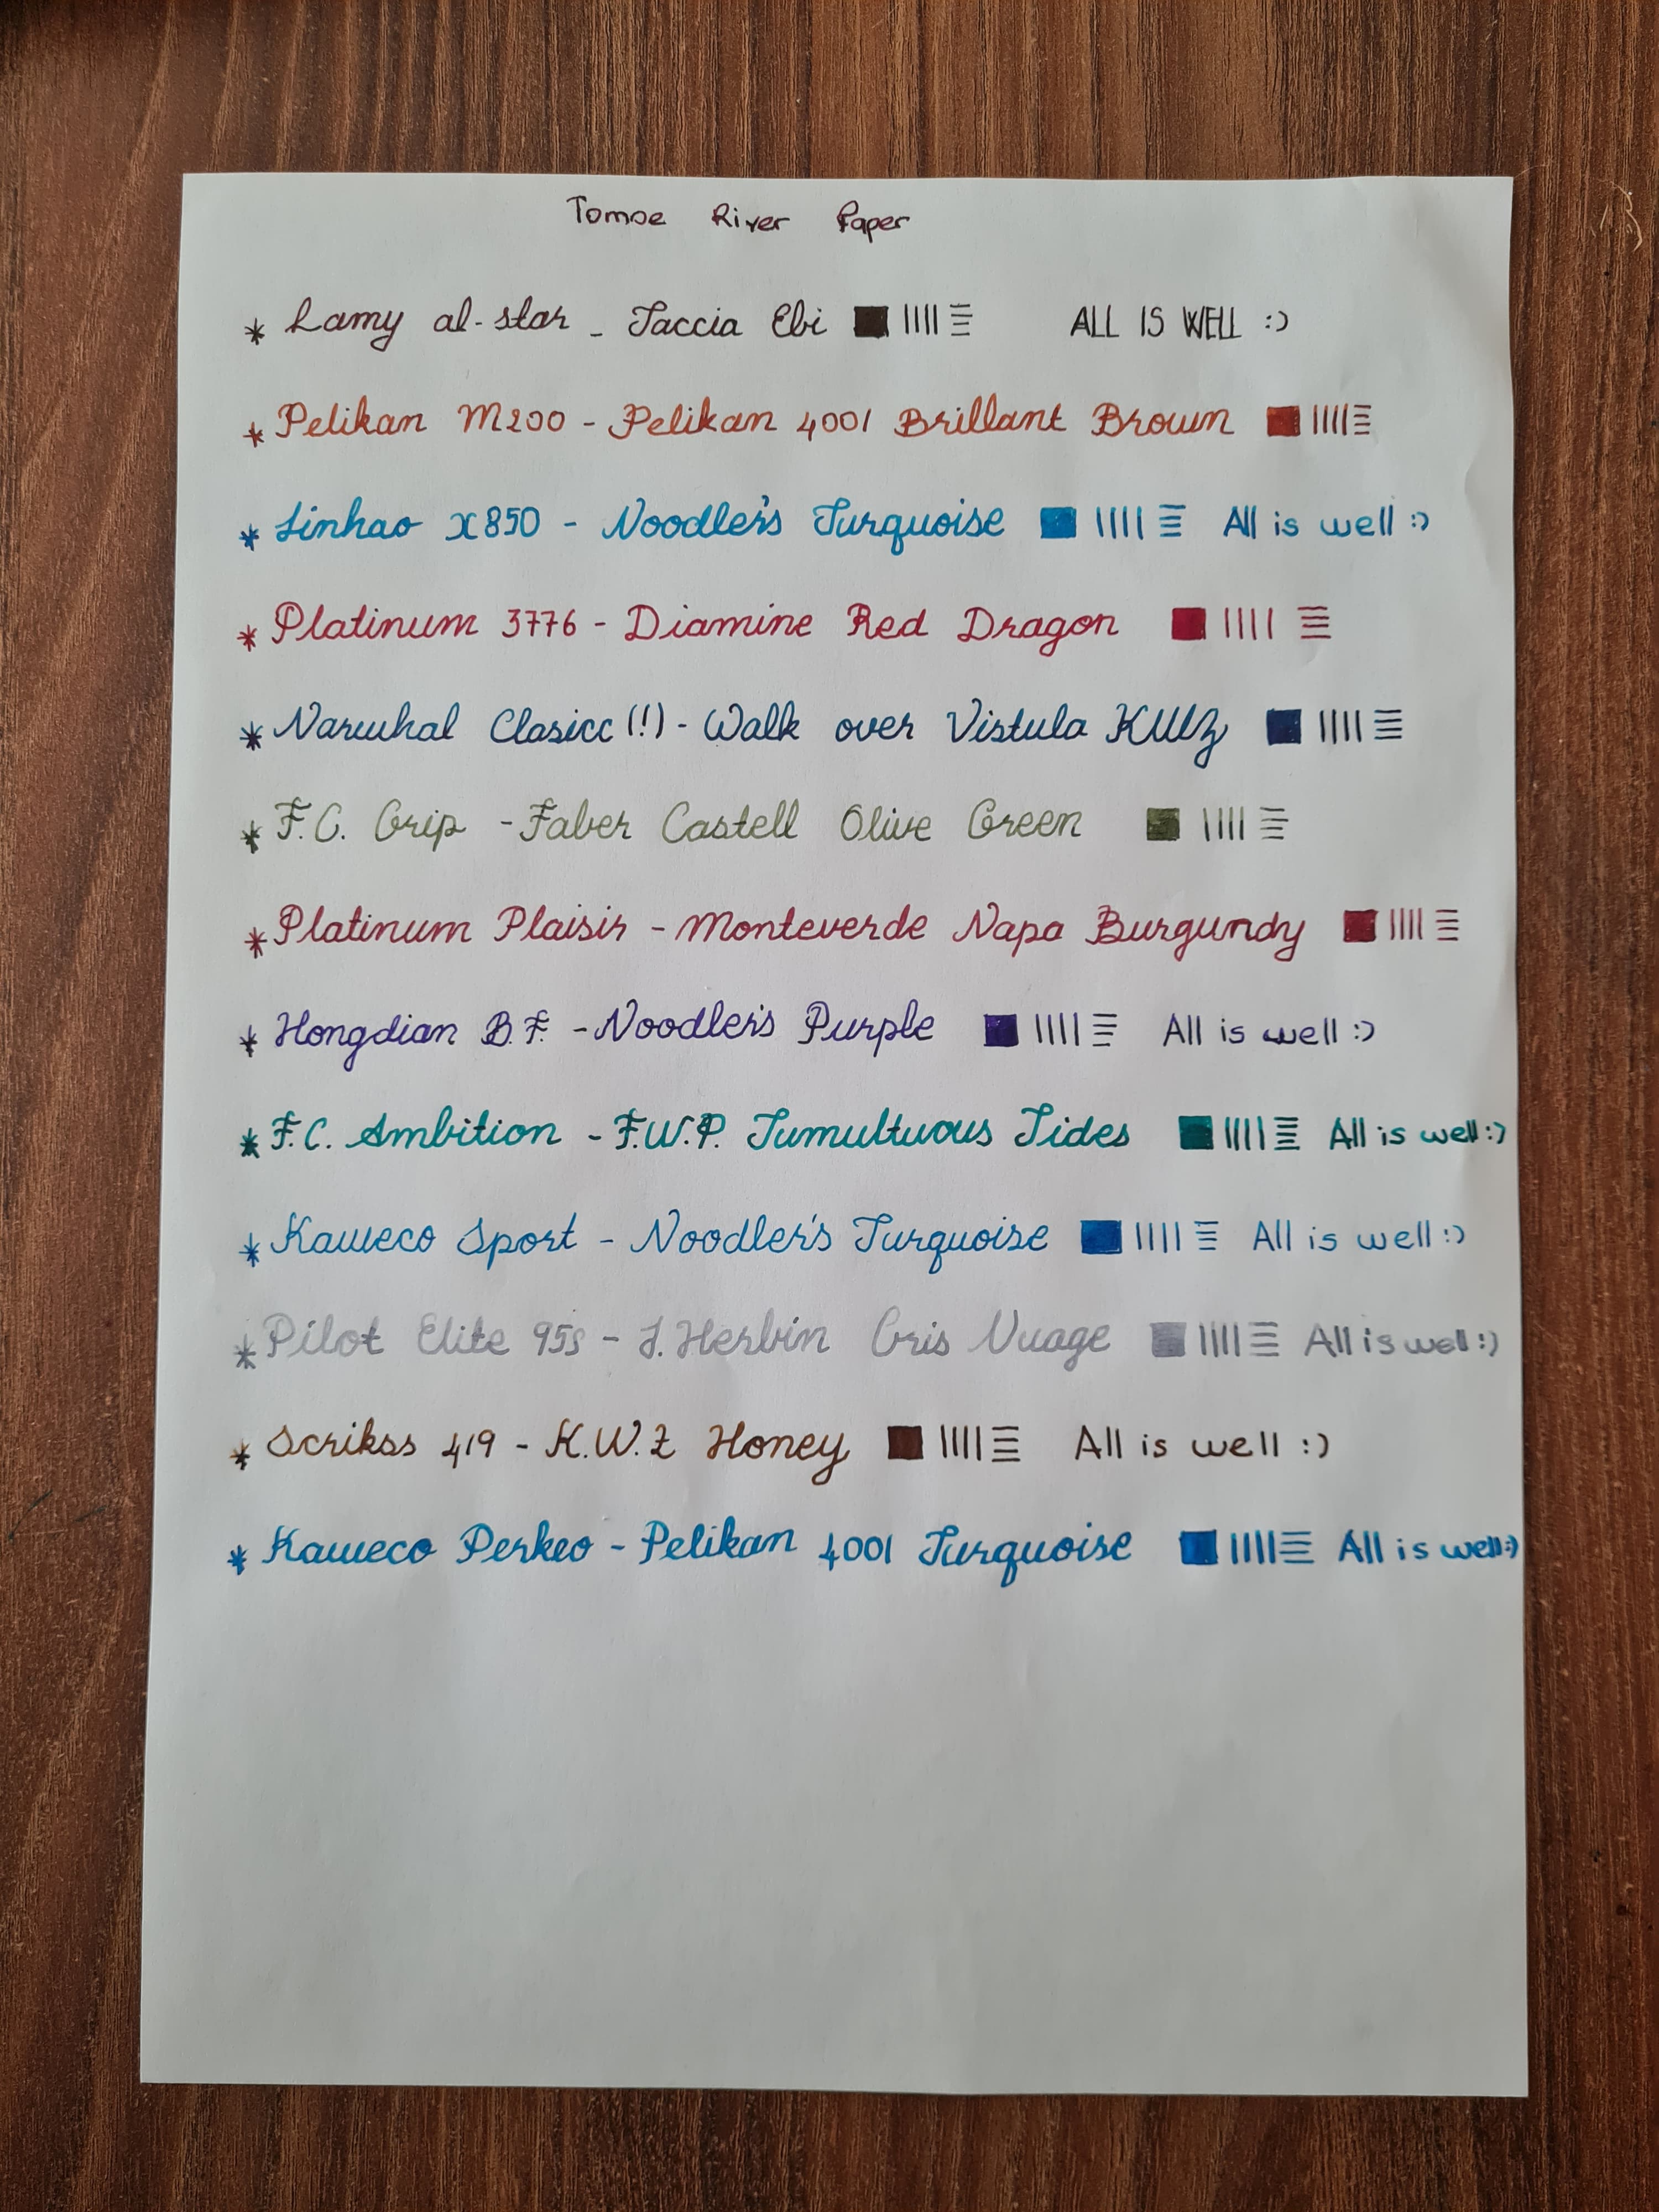 Tomoe River Paper
* Lamy al-star - Taccia Ebi ALL IS WELL :)
* Pelikan M200 - Pelikan 4001 Brillant Brown
* Jinhao X850 - Noodler's Turquoise All is well :)
* Platinum 3776 - Diamine Red Dragon
* Narwhal Clasicc (!) - Walk over Vistula KWZ
* F.C. Grip - Faber Castell Olive Green
* Platinum Plaisir - Monteverde Napa Burgundy
* Hongdian B.F. - Noodler's Purple All is well :)
* F.C. Ambition - F.W.P. Tumultuous Tides All is well :)
* Kaweco Sport - Noodler's Turquoise All is well :)
* Pilot Elite 95s - J. Herbin Gris Nuage All is well :)
* Scrikss 419 - K.W.Z Honey All is well :)
* Kaweco Perkeo - Pelikan 4001 Turquoise All is well :)